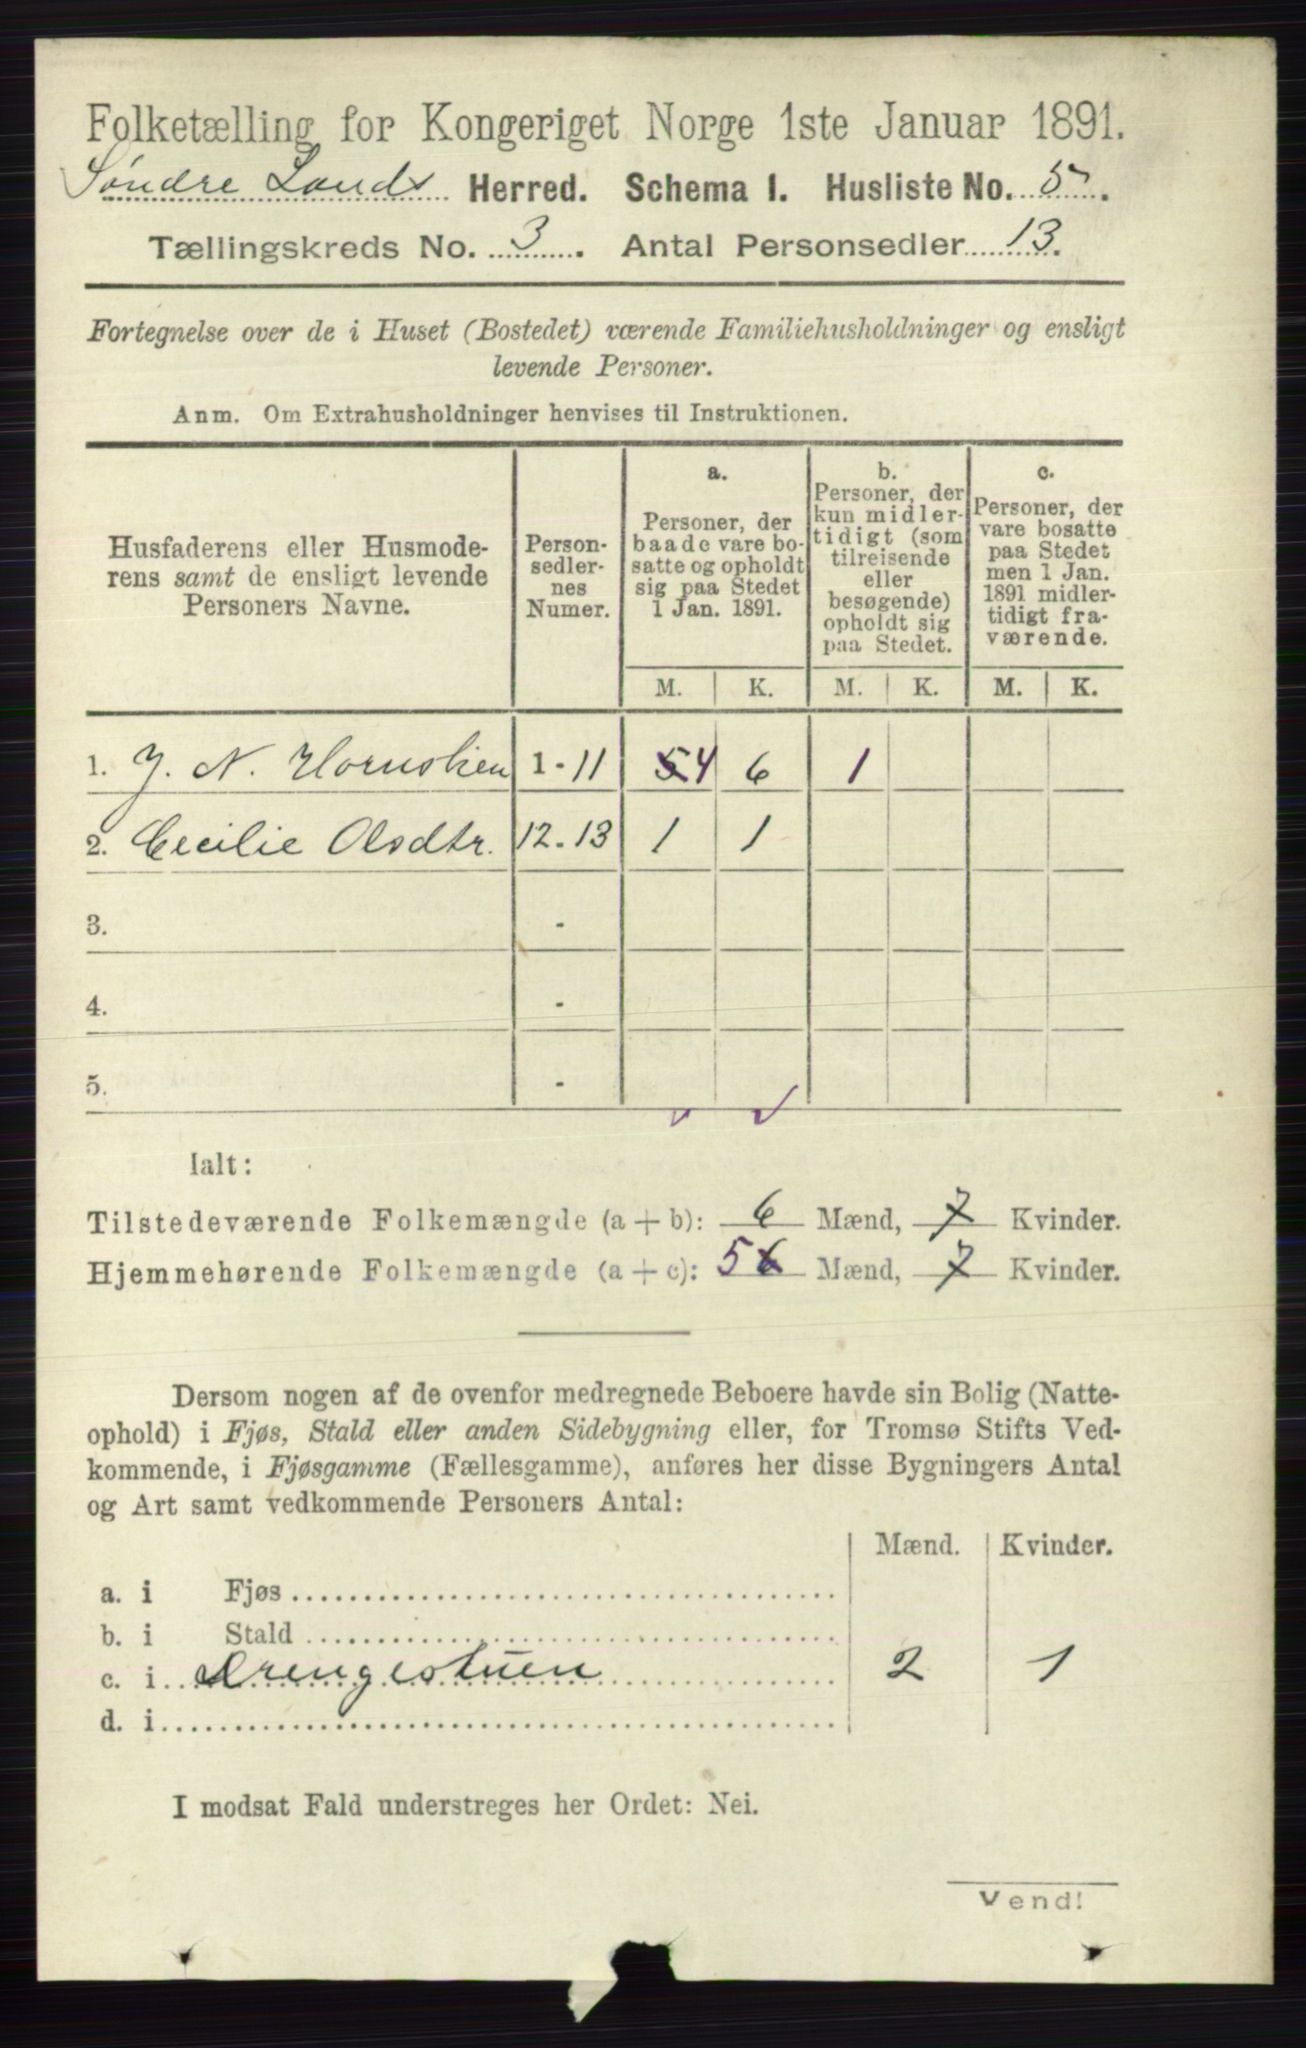 Folketælling for Kongeriget Norge 1ste Januar 1891.
Søndre Lands Herred. Schema 1. Husliste No. 5.
Tællingskreds No. 3. Antal Personsedler 13.
Fortegnelse over de i Huset (Bostedet) værende Familiehusholdninger og ensligt
levende Personer.
Anm. Om Extrahusholdninger henvises til Instruktionen.
Husfaderens eller Husmode-
rens samt de ensligt levende
Personers Navne.
Person-
sedler-
nes
Numer.
a.
Personer, der
baade vare bo-
satte og opholdt
sig paa Stedet
1 Jan. 1891.
b.
Personer, der
kun midler-
tidigt (som
tilreisende
eller
besøgende)
opholdt sig
paa Stedet.
c.
Personer, der
vare bosatte
paa Stedet
men 1 Jan.
1891 midler-
tidigt fra-
værende.
M. K. M. K. M. K.
1. J. N. Hornslien 1-11 5 4 6 1
2. Cecilie Olsdtr. 12-13 1 1
3. -
4. -
5. -
Ialt:
Tilstedeværende Folkemængde (a + b): 6 Mænd, 7 Kvinder.
Hjemmehørende Folkemængde (a + c): 5 6 Mænd, 7 Kvinder.
Dersom nogen af de ovenfor medregnede Beboere havde sin Bolig (Natte-
ophold) i Fjøs, Stald eller anden Sidebygning eller, for Tromsø Stifts Ved-
kommende, i Fjøsgamme (Fællesgamme), anføres her disse Bygningers Antal
og Art samt vedkommende Personers Antal:
Mænd. Kvinder.
a. i Fjøs
b. i Stald
c. i Drengestuen 2 1
d. i
I modsat Fald understreges her Ordet: Nei.
Vend!